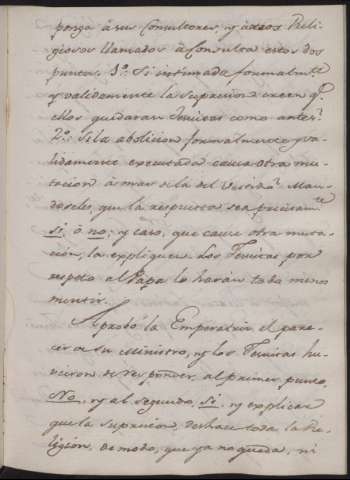 ponga à sus Consultores, y à otros Reli-
giosos llamados à Consulta estos dos
puntos. 1º. Si intimada formalm.te
y validamente la Supresion creen q.e
ellos quedaran Jesuitas como antes?
2º. Si la abolicion formalmente, y va-
lidamente executada cause otra mu-
tacion à mas de la del Vestido? Man-
deseles, que la respuesta sea precisam.te
si, ò no; y caso, que cause otra muta-
cion, la expliquen. Los Jesuitas por
respeto al Papa lo haràn toda menos
mentir.
Aprobó la Emperatriz el pare-
cer de su Ministro, y los Jesuitas hu-
vieron de responder, al primer punto,
No, y al segundo, Si, y explicar
que la Supresion deshace toda la Re-
ligion, de modo, que ya no queda, ni